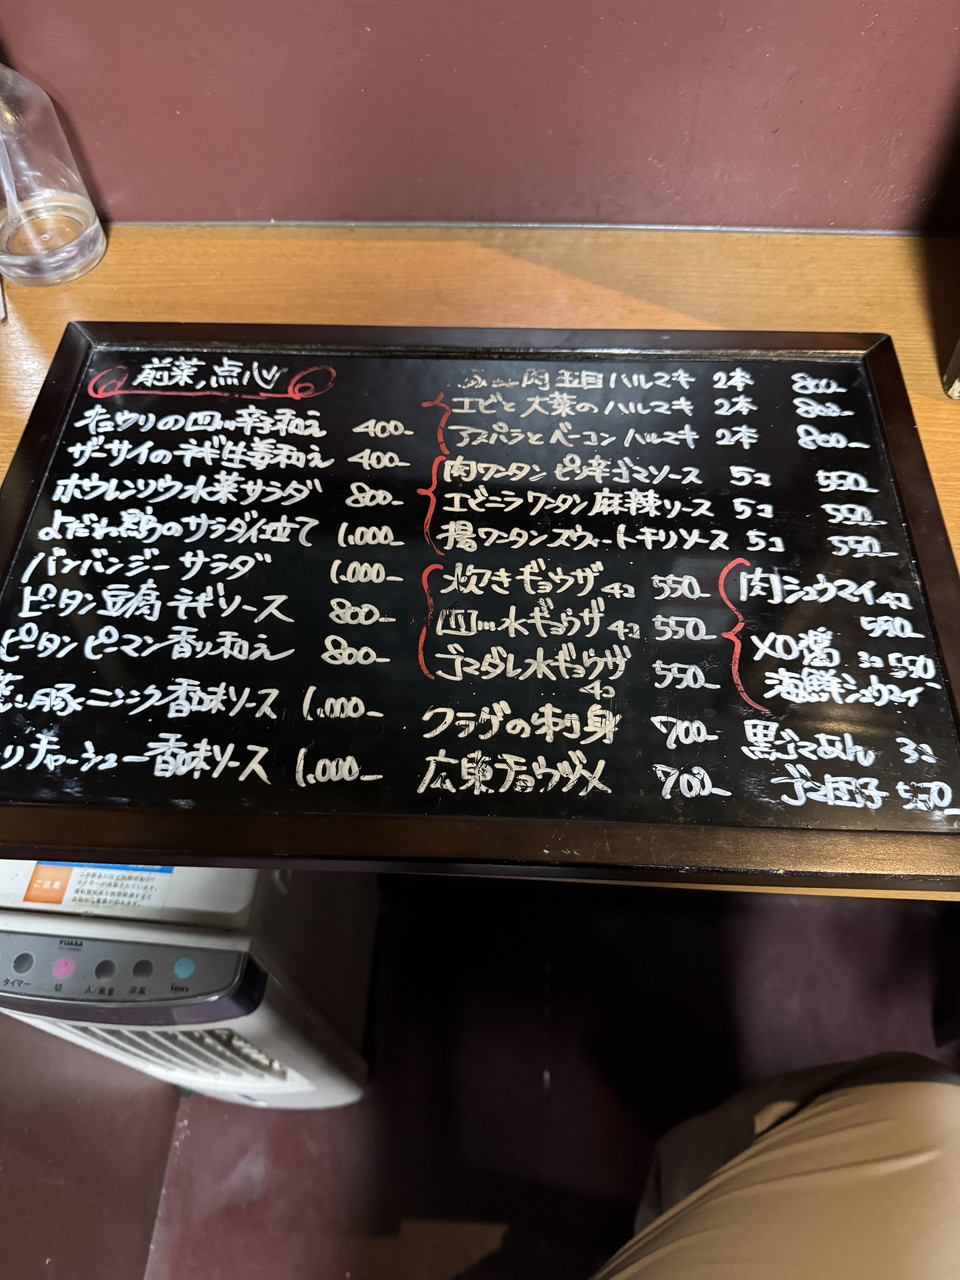 前菜,点心
たたウリの四川辛和え 400-
ザーサイのネギ生姜和え 400-
ホウレンソウ水菜サラダ 800-
よだれ鶏のサラダ仕立て 1,000-
バンバンジーサラダ 1,000-
ピータン豆腐ネギソース 800-
ピータンピーマン香り和え 800-
豚ニンニク香味ソース 1,000-
リチャーシュー香味ソース 1,000-
肉五目ハルマキ 2本 800-
エビと大葉のハルマキ 2本 800-
アスパラとベーコンハルマキ 2本 800-
肉ワータンピリ辛ゴマソース 5コ 550-
エビニラワンタン麻辣ソース 5コ 550-
揚ワータンスウィートチリソース 5コ 550-
炊きギョウザ 4コ 550-
四川水ギョウザ 4コ 550-
ゴマダレ水ギョウザ 4コ 550-
クラゲの刺身 700-
広東チョウヅメ 700-
肉シュウマイ 4コ 550-
XO醤 3コ 550
海鮮シュウマイ
黒ゴマあん 3コ
ゴマ団子 550-
ご注意
YUASA
タイマー 切 入/風量 涼風 ion